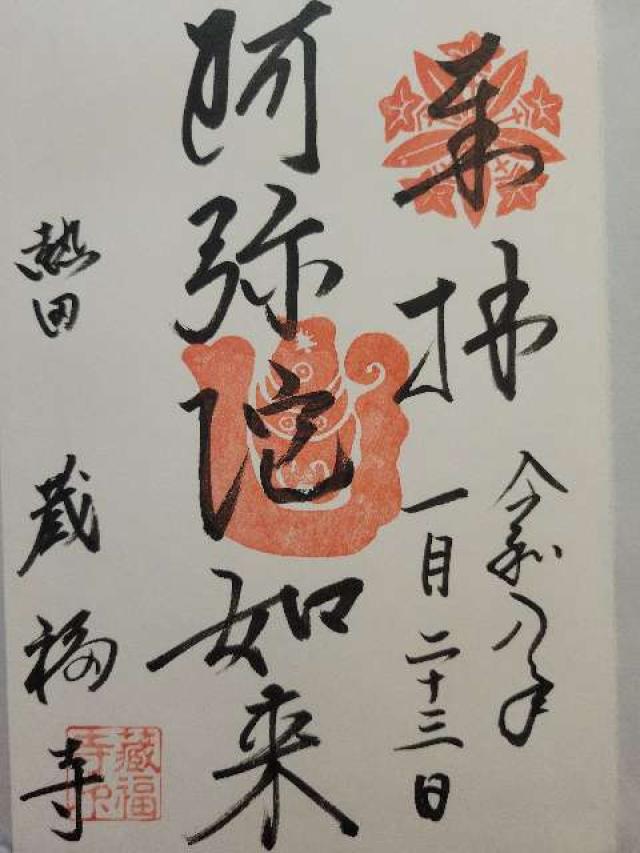 奉拝
令和八年
一月二十三日
阿弥陀如来
熱田 蔵福寺
藏福寺印